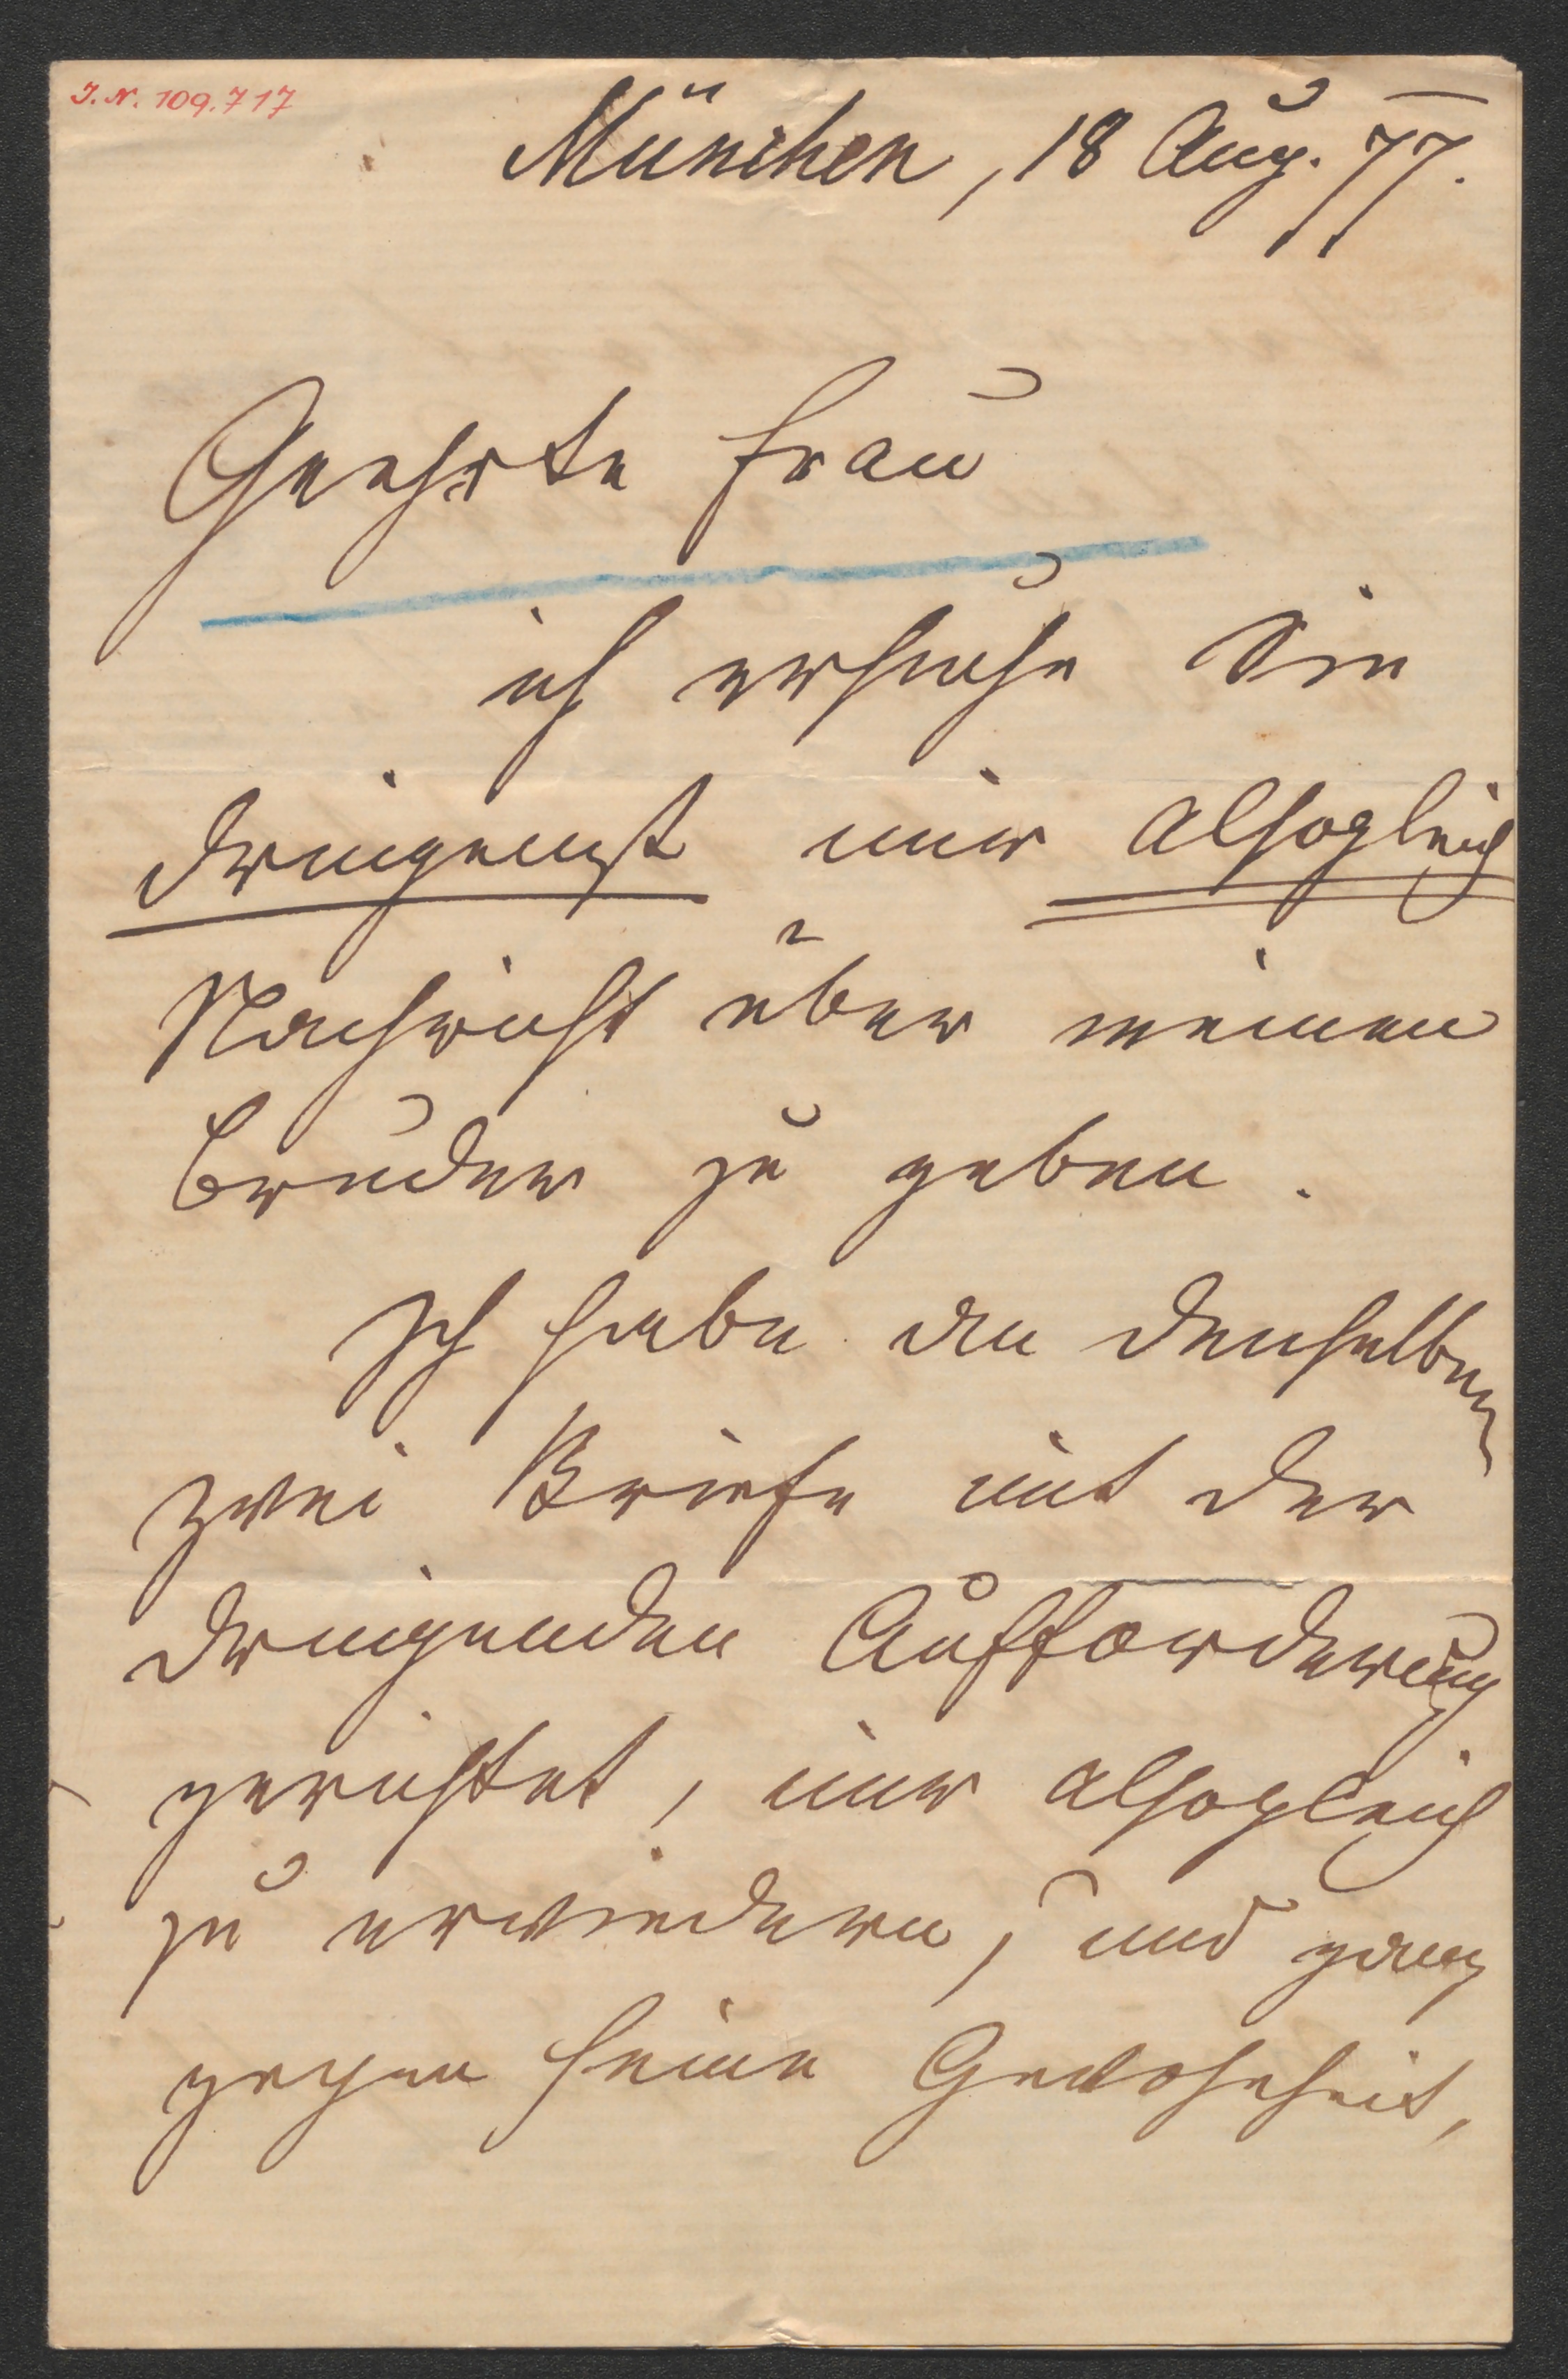 J. N. 109.717
München, 18 Aug. 77.
Geehrte Frau
ich ersuche Sie
dringenst mir alsogleich
Nachricht über meinen
Bruder zu geben.
Ich habe an denselben
zwei Briefe mit der
dringenden Aufforderung
gerichtet, mir alsogleich
zu erwiedern, und ganz
gegen seine Gewohnheit,